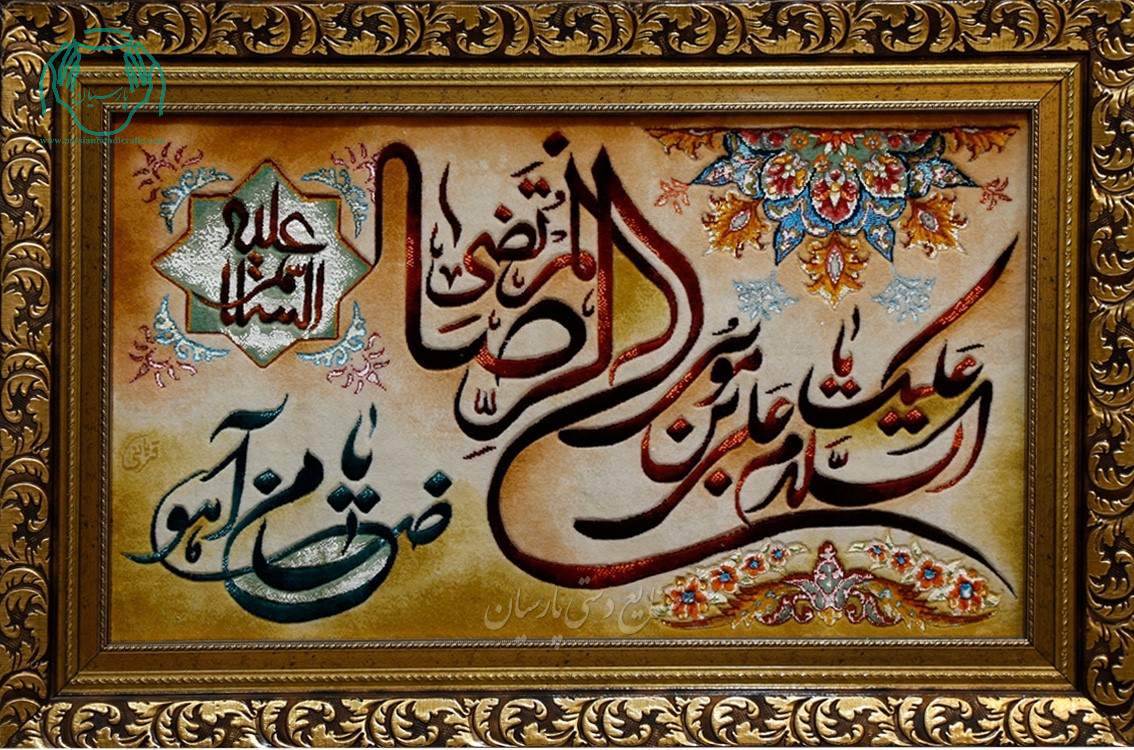 السلام علیک یا علی بن موسی الرضا المرتضی
علیه السلام
یا ضامن آهو
پارسیان
صنایع دستی پارسیان